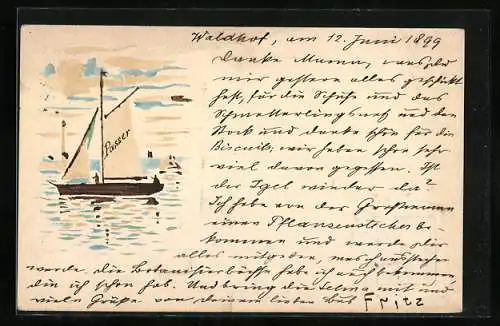 Waldhof, am 12. Juni 1899
Danke Mama, was du
mir gestern alles geschickt
hast, für die Schuhe und das
Schmetterlingsnetz und den
Stock und danke schön für die
Biscuits; wir haben schon sehr
viel davon gegessen. Ist
der Igel wieder da?
Ich habe von der Grossmama
einen Pflanzenstecher be-
kommen und werde dir
alles mitgeben,
werde, die Botanisierbüchse habe ich auch bekommen
die ich schon hab. Und bring die Selma mit und
viele Grüße von deinem lieben Fritz
Passer